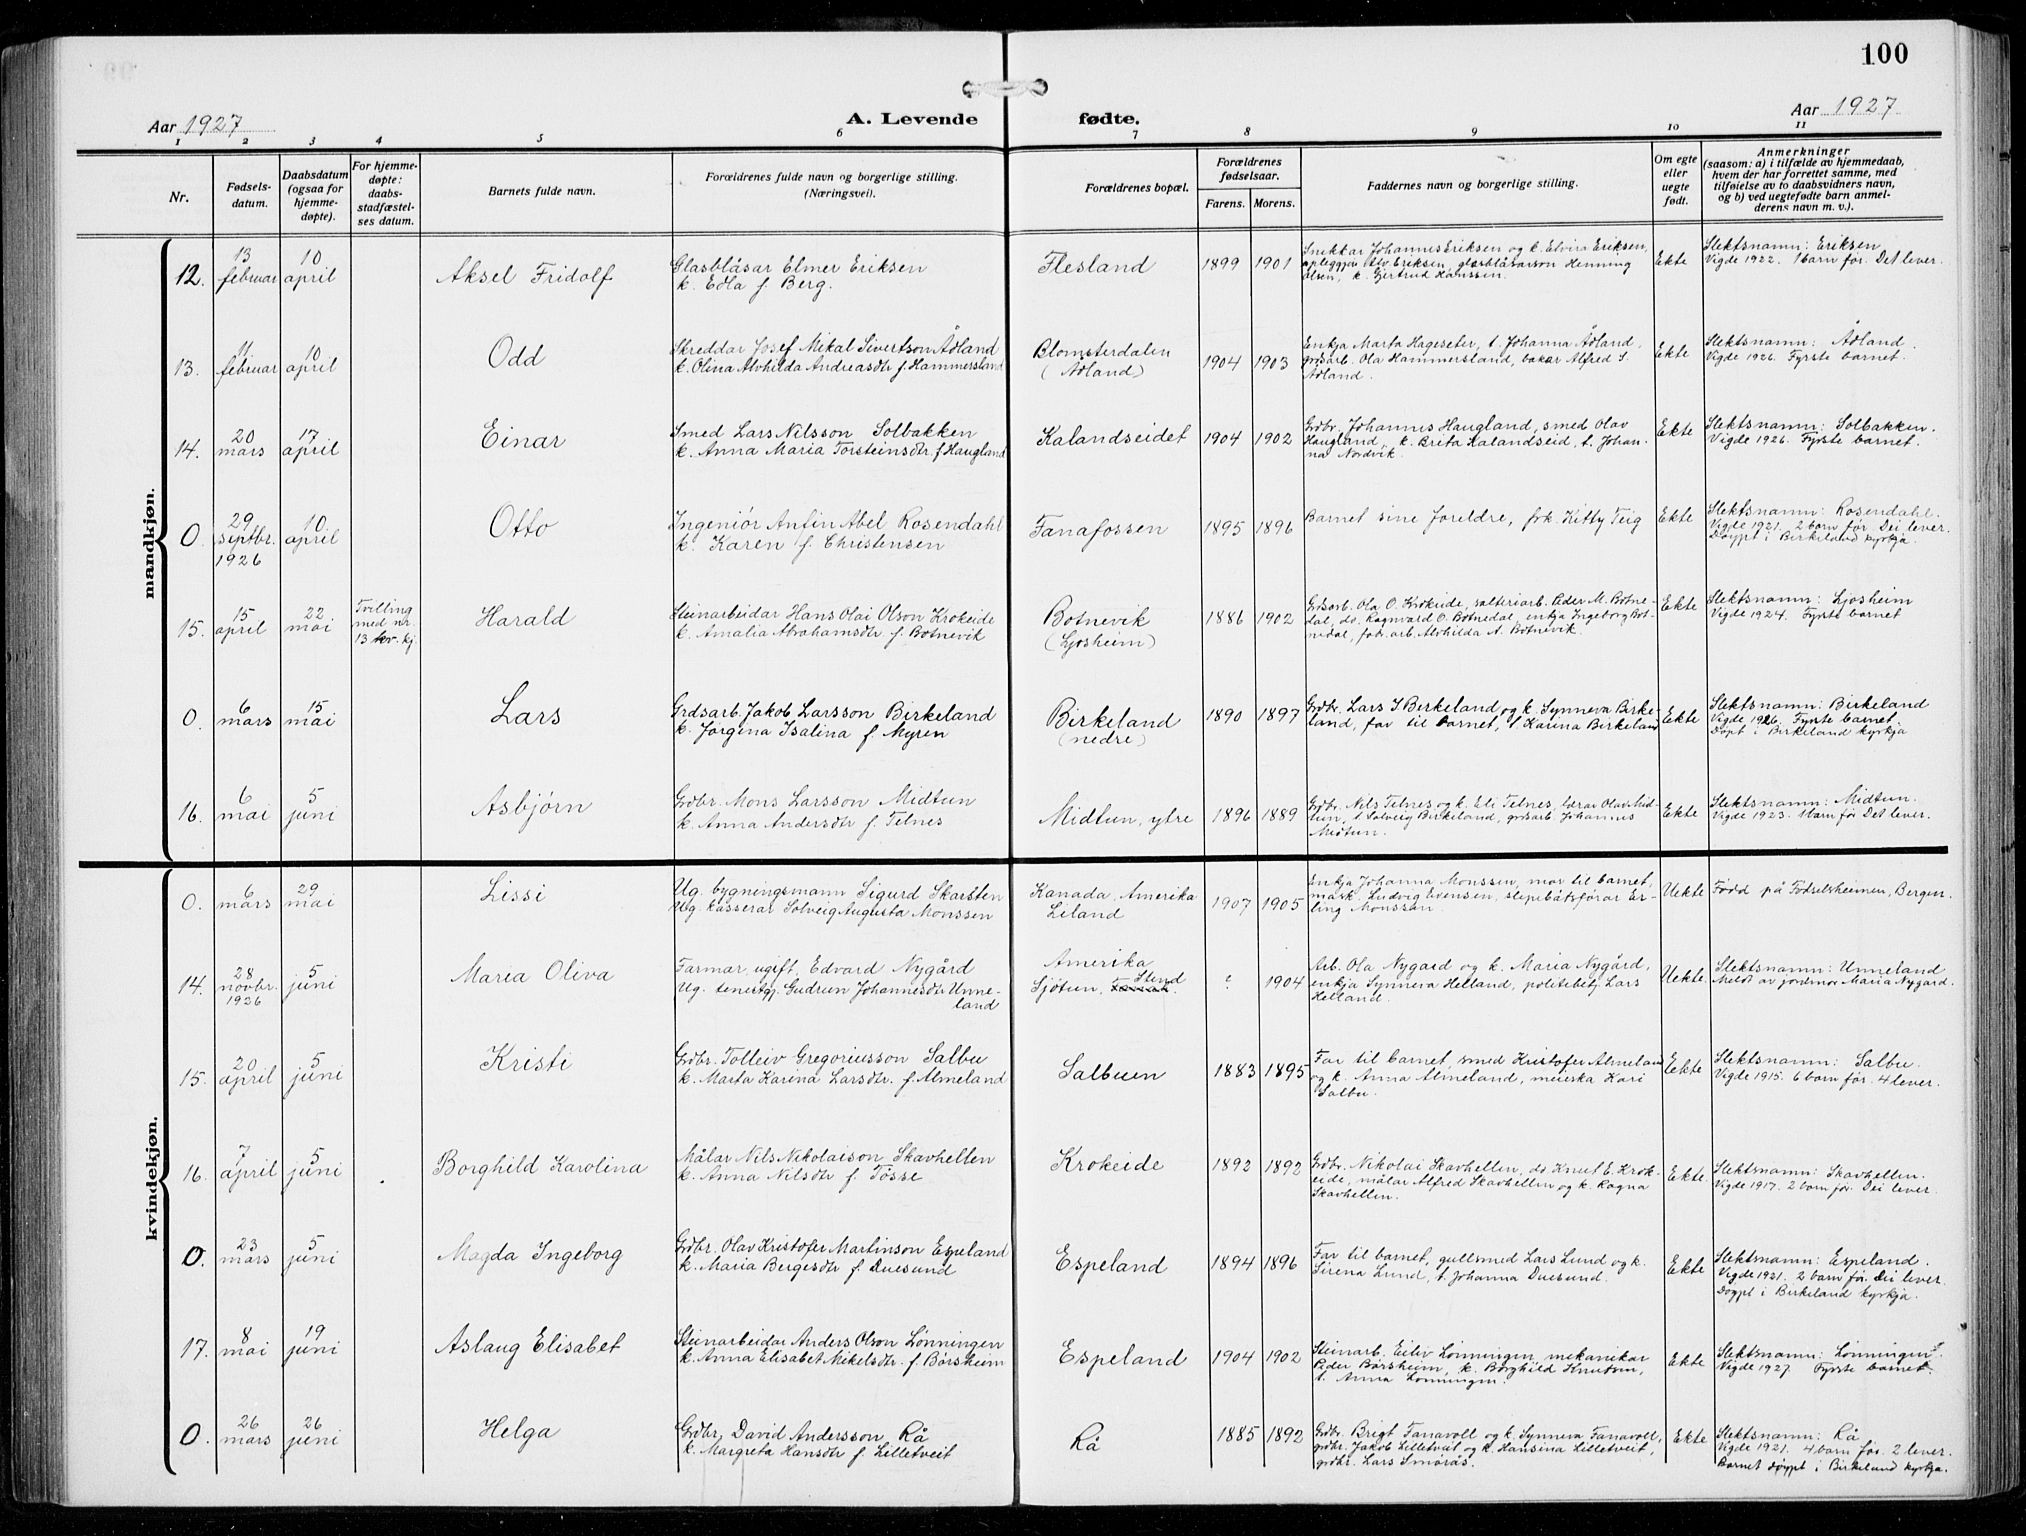 100
Aar 1927
A. Levende fødte.
Aar 1927
1 2 3 4 5 6 7 8 9 10 11
Nr.
Fødsels-
datum.
Daabsdatum
(ogsaa for
hjemme-
døpte).
For hjemme-
døpte:
daabs-
stadfæstel-
ses datum.
Barnets fulde navn.
Forældrenes fulde navn og borgerlige stilling.
(Næringsvei).
Forældrenes bopæl.
Forældrenes
fødselsaar.
Farens. Morens.
Faddernes navn og borgerlige stilling.
Om egte
eller
uegte
født.
Anmerkninger
(saasom: a) i tilfælde av hjemmedaab,
hvem der har forrettet samme, med
tilføielse av to daabsvidners navn,
og b) ved uegtefødte barn anmel-
derens navn m. v.).
mandkjøn.
12.
13
februar
10
april
Aksel Fridolf
Glasblåsar Elmer Eriksen
k. Edla f. Berg.
Flesland
1899 1901
Snikkar Johannes Eriksen og k. Elvira Eriksen,
opleggjar Eriksen, glasblåsarson Henning
Olsen, k. Gjertrud Hanssen.
Ekte
Slektsnamn: Eriksen
Vigde 1922. 1 barn før. Det lever.
13.
11
februar
10
april
Odd
Skreddar Josef Mikal Sivertson Ådland
k. Olina Alvhilda Andreasdtr f. Hammersland
Blomsterdalen
(Ådland)
1904 1903
Enkja Marta Hageseter, t. Johanna Ådland,
grdsarb. Ola Hammersland, bakar Alfred S.
Ådland.
Ekte
Slektsnamn: Ådland.
Vigde 1926. Fyrste barnet.
14.
20
mars
17
april
Einar
Smed Lars Nilsson Solbakken
k. Anna Maria Torsteinsdtr. f. Haugland
Kalandseidet
1904 1902
Grdbr. Johannes Haugland, smed Olav
Haugland, k. Brita Kalandseid, t. Johan-
na Nordvik.
Ekte
Slektsnamn: Solbakken.
Vigde 1926. Fyrste barnet.
O.
29
septbr.
1926
10
april
Otto
Ingeniør Anfin Abel Rosendahl
k. Karen f. Christensen
Fanafossen
1895 1896
Barnet sine foreldre, frk. Kitty Teig
Ekte
Slektsnamn: Rosendahl.
Vigde 1921. 2 born før. Dei lever.
Døypt i Birkeland kyrkja.
15.
15
april
22
mai
Tvilling
med nr.
13 kv. kj.
Harald
Steinarbeidar Hans Olai Olson Krokeide
k. Amalia Abrahamsdtr. f. Botnevik
Botnevik
(Ljosheim)
1886 1902
Grdsarb. Ola O. Krokeide, salteriarb. Peder M. Botne-
dal, do. Ragnvard O. Botnedal, enkja Ingeborg Bot-
nedal, fabr. arb. Alvhilda A. Botnevik.
Ekte
Slektsnamn: Ljosheim
Vigde 1924. Fyrste barnet
O.
6
mars
15
mai
Lars
Grdsarb. Jakob Larsson Birkeland
k. Jørgena Isalina f. Myren
Birkeland
(nedre)
1890 1897
Grdbr. Lars J Birkeland og k. Synneva Birke-
land, far til barnet, t. Karina Birkeland
Ekte
Slektsnamn: Birkeland
Vigde 1926. Fyrste barnet.
Døpt i Birkeland kyrkja
16.
6
mai
5
juni
Asbjørn
Grdbr. Mons Larsson Midtun
k. Anna Andersdtr f. Telnes
Midtun, ytre
1896 1889
Grdbr. Nils Telnes og k. Eli Telnes, lærar Olav Mid-
tun, t. Solveig Birkeland, grdsarb. Johannes
Midtun.
Ekte
Slektsnamn: Midtun.
Vigde 1923. 1 barn før. Det lever.
kvindekjøn.
O.
6
mars
29
mai
Lissi
Ug. bygningsmann Sigurd Skarsten
Ug. kasserar Solveig Augusta Monssen
Kanada, Amerika
Liland
1907 1905
Enkja Johanna Monssen, mor til barnet,
mask. Ludvig Evensen, slepebåtsførar Er-
ling Monssen.
Uekte
Født på Fødselsheimen, Bergen.
14.
28
novbr.
1926
5
juni
Maria Oliva
Farmar, ugift, Edvard Nygård
Ug. tenestgj. Gudrun Johannesdtr Unne-
land
Amerika
Sjøtun, Stend
? 1904
Arb. Ola Nygard og k. Maria Nygård,
enkja Synneva Helland, politebetj. Lars
Helland.
Uekte
Slektsnamn: Unneland
Meldt av jordmor Maria Nygard.
15.
20
april
5
juni
Kristi
Grdbr. Tolleiv Gregoriusson Salbu
k. Marta Karina Larsdtr. f. Almeland
Salbuen
1883 1895
Far til barnet, smed Kristofer Almeland
og k. Anna Almeland, meierska Kari
Salbu.
Ekte
Slektsnamn: Salbu.
Vigde 1915. 6 born før. 4 lever.
16.
7
april
5
juni
Borghild Karolina
Målar Nils Nikolaison Skavhellen
k. Anna Nilsdtr f. Tøsse
Krokeide
1892 1892
Grdbr. Nikolai Skavhellen, do Knut E. Krok-
eide, målar Alfred Skavhellen og k. Ragna
Skavhellen.
Ekte.
Slektsnamn: Skavhellen.
Vigde 1917. 2 born før. Dei lever.
O.
23
mars
5
juni
Magda Ingeborg
Grdbr. Olav Kristofer Martinson Espeland
k. Maria Bergesdtr f. Duesund
Espeland
1894 1896
Far til barnet, gullsmed Lars Lund og k.
Sirena Lund, t. Johanna Duesund.
Ekte
Slektsnamn: Espeland.
Vigde 1921. 2 born før. Dei lever.
Døypt i Birkeland kyrkja.
17.
8
mai
19
juni
Aslaug Elisabet
Steinarbeidar Anders Olson Lønningen
k. Anna Elisabet Mikelsdtr. f. Børsheim
Espeland
1904 1902
Steinarb. Eiliv Lønningen, mekanikar
Peder Børsheim, k. Borghild Knutsen,
t. Anna Lønningen.
Ekte
Slektsnamn: Lønningen.
Vigde 1927. Fyrste barnet.
O.
26
mars
26
juni
Helga
Grdbr. David Andersson Rå
k. Margreta Hansdtr f. Lilletveit
Rå
1885 1892
Grdbr. Brigt Fanavoll og k. Synneva Fanavoll,
grdbr. Jakob Lilletveit og k. Hansina Lilletveit,
grdbr. Lars Smørås.
Ekte
Slektsnamn: Rå
Vigde 1921. 4 born før. 2 lever.
Barnet døypt i Birkeland kyrkja.